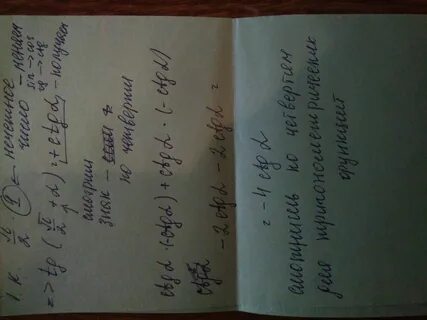 Т.к. π/2 ① ← нечетное
число – меняем
sin → cos
tg → ctg
=> tg (π/2 + α) ; + ctg α – получаем
смотрим
знак –
по четверти
ctg α · (-ctg α) + ctg α · (-ctg α)
- 2 ctg α - 2 ctg α =
= - 4 ctg α
смотритель по четвертям
для тригонометрических
функций